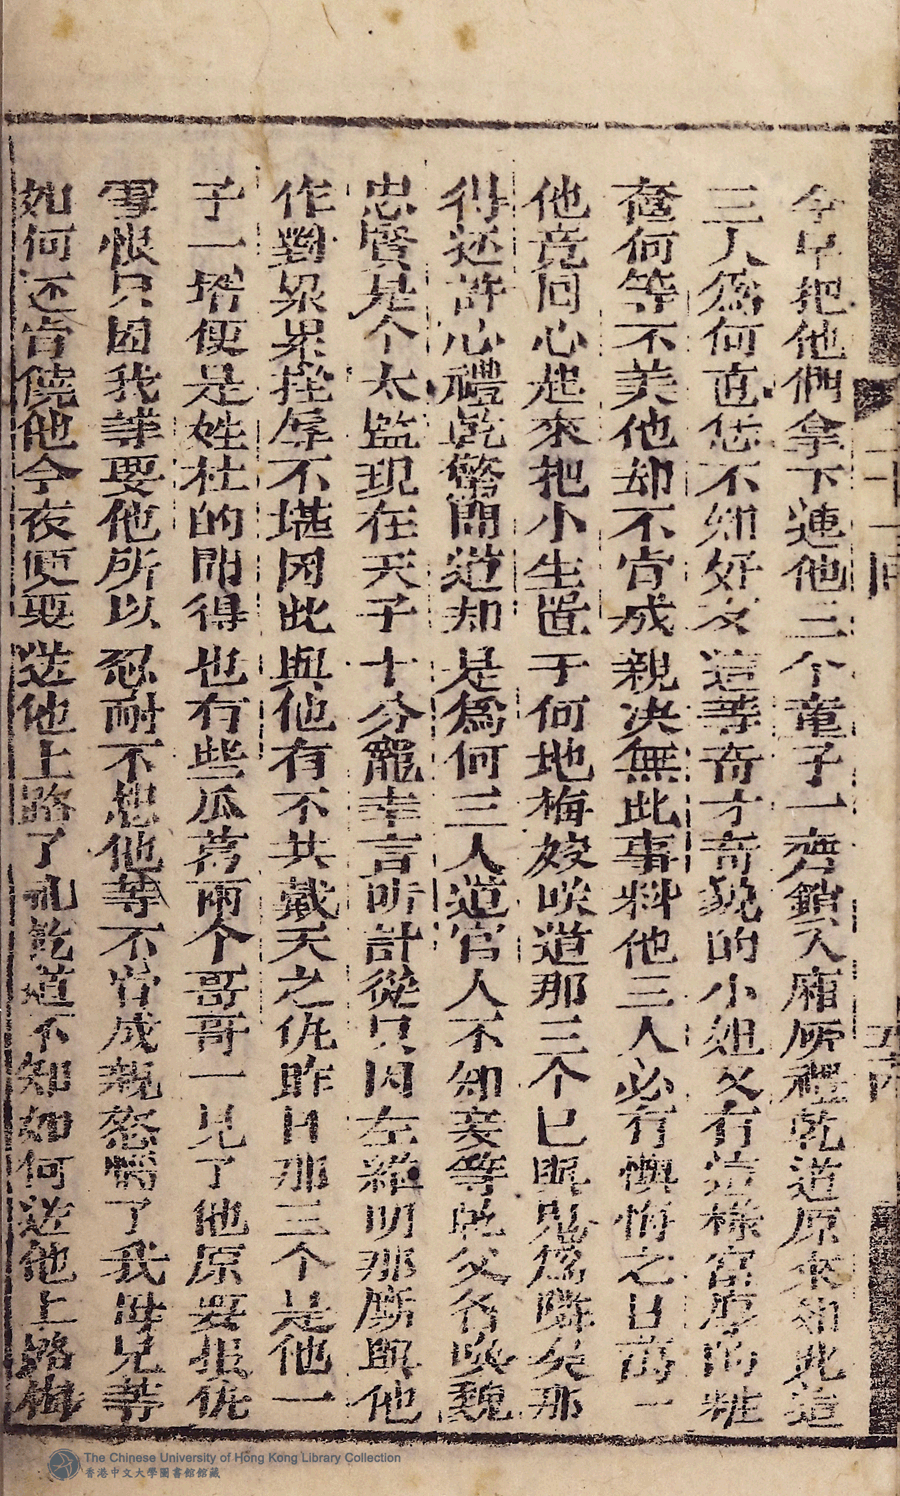 今早把他們拿下連他三个童子一齊鎖入廂房禮乾道原來如此這
三人為何直恁不知好歹這等奇才奇貌的小姐又有這樣富厚的粧
奩何等不美他却不肯成親决無此事料他三人必有懊悔之日萬一
他竟囘心起來把小生置于何地梅嫂咲道那三个已與鬼為隣矣那
得还許心禮乾驚問道却是為何三人道官人不知妾等乾父名喚魏
忠賢是个太監現在天子十分寵幸言听計從只因左維明那厮與他
作對累累挫辱不堪因此與他有不共戴天之仇昨日那三个是他一
子一壻便是姓杜的問得也冇些瓜葛兩个哥哥一見了他原要报仇
雪恨只因我等要他所以忍耐不想他等不肯成親怒惱了我母兄等
如何还肯饒他今夜便要送他上路了礼乾道不知如何送他上路梅
二十一囘
The Chinese University of Hong Kong Library Collection
香港中文大學圖書館館藏